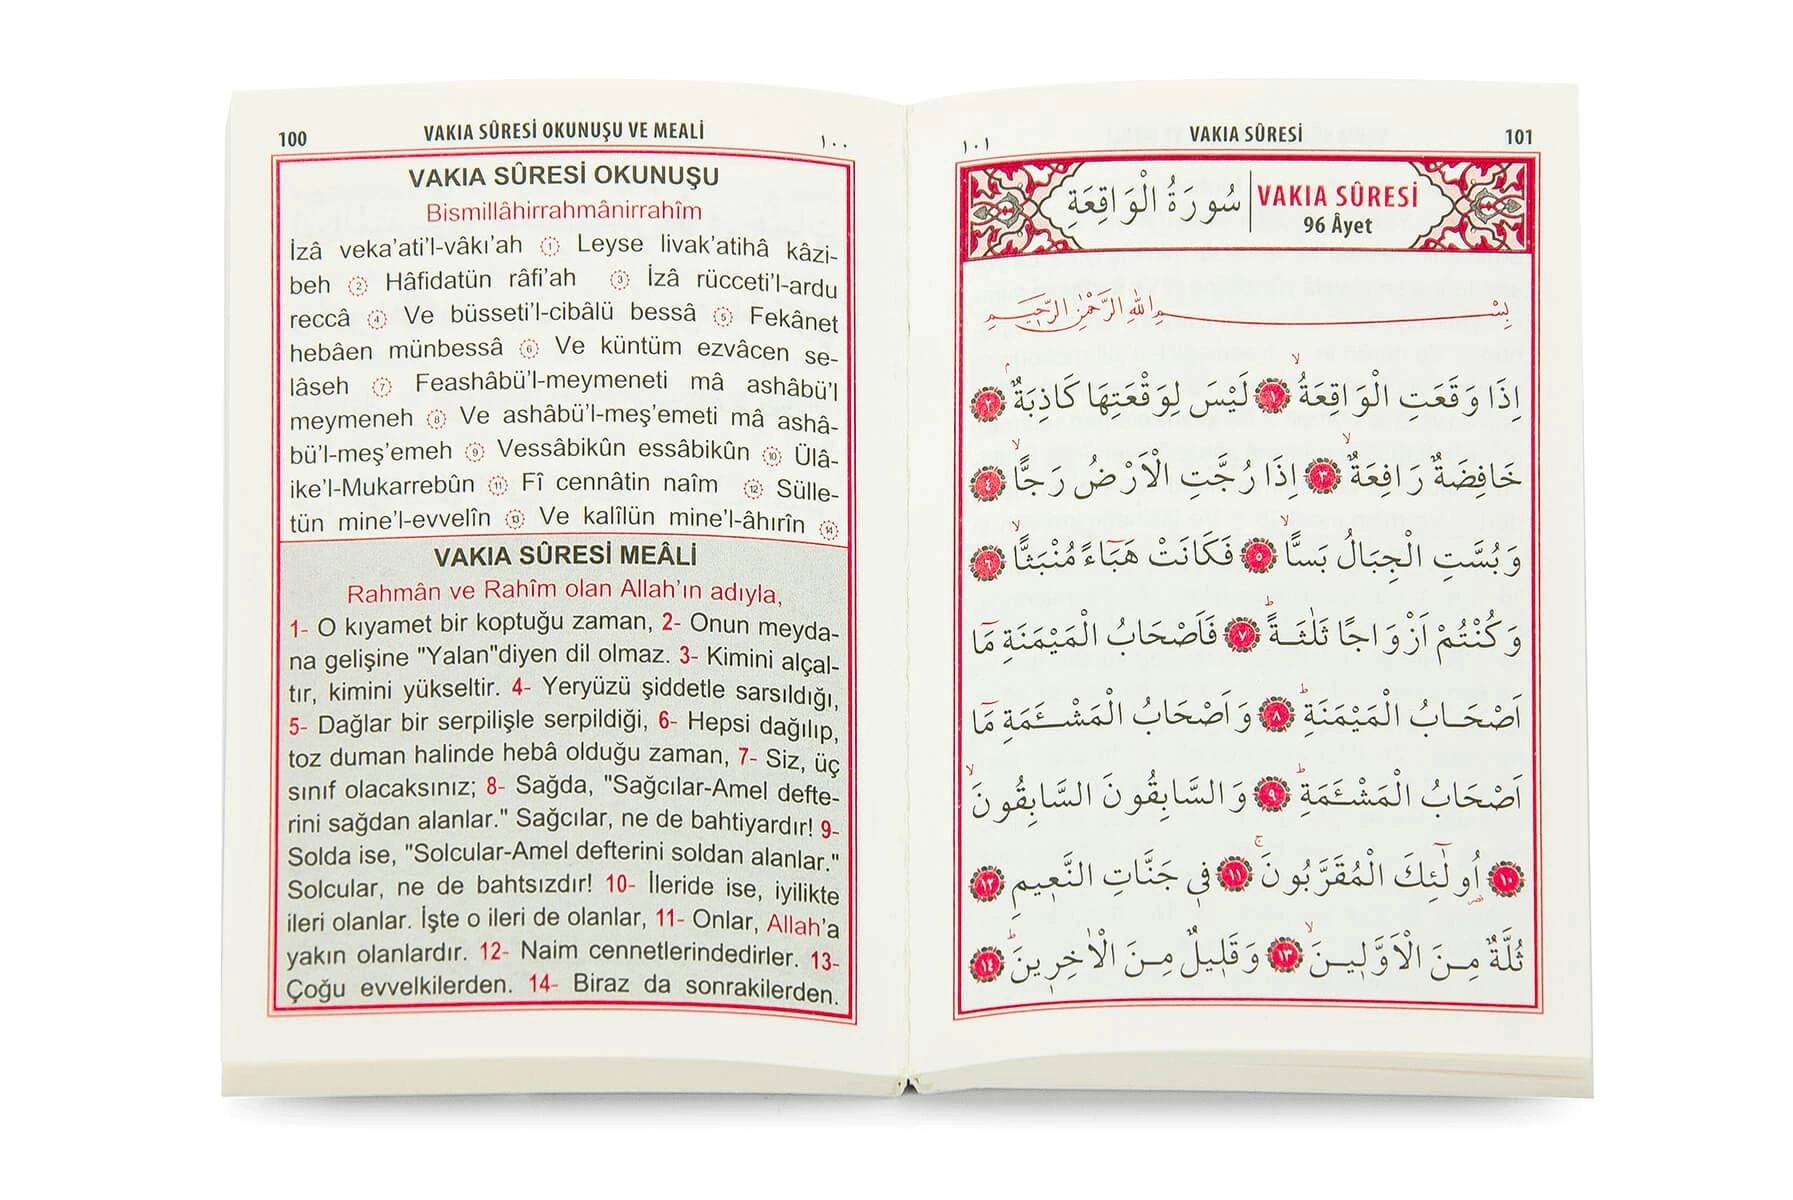 100 VAKIA SÛRESİ OKUNUŞU VE MEALİ ١٠٠
VAKIA SÛRESİ OKUNUŞU
Bismillâhirrahmânirrahîm
İzâ veka’ati’l-vâkı’ah 1 Leyse livak’atihâ kâzi-
beh 2 Hâfidatün râfi’ah 3 İzâ rücceti’l-ardu
reccâ 4 Ve büsseti’l-cibâlü bessâ 5 Fekânet
hebâen münbessâ 6 Ve küntüm ezvâcen se-
lâseh 7 Feashâbü’l-meymeneti mâ ashâbü’l
meymeneh 8 Ve ashâbü’l-meş’emeti mâ ashâ-
bü’l-meş’emeh 9 Vessâbikûn essâbikûn 10 Ülâ-
ike’l-Mukarrebûn 11 Fî cennâtin naîm 12 Sülle-
tün mine’l-evvelîn 13 Ve kalîlün mine’l-âhırîn 14
VAKIA SÛRESİ MEÂLİ
Rahmân ve Rahîm olan Allah’ın adıyla,
1- O kıyamet bir koptuğu zaman, 2- Onun meyda-
na gelişine "Yalan"diyen dil olmaz. 3- Kimini alçal-
tır, kimini yükseltir. 4- Yeryüzü şiddetle sarsıldığı,
5- Dağlar bir serpilişle serpildiği, 6- Hepsi dağılıp,
toz duman halinde hebâ olduğu zaman, 7- Siz, üç
sınıf olacaksınız; 8- Sağda, "Sağcılar-Amel defte-
rini sağdan alanlar." Sağcılar, ne de bahtiyardır! 9-
Solda ise, "Solcular-Amel defterini soldan alanlar."
Solcular, ne de bahtsızdır! 10- İleride ise, iyilikte
ileri olanlar. İşte o ileri de olanlar, 11- Onlar, Allah’a
yakın olanlardır. 12- Naim cennetlerindedirler. 13-
Çoğu evvelkilerden. 14- Biraz da sonrakilerden.
١٠١ VAKIA SÛRESİ 101
سُورَةُ الْوَاقِعَةِ
VAKIA SÛRESİ
96 Âyet
بِسْمِ اللهِ الرَّحْمٰنِ الرَّحٖيمِ
اِذَا وَقَعَتِ الْوَاقِعَةُۙ ١ لَيْسَ لِوَقْعَتِهَا كَاذِبَةٌۢ ٢
خَافِضَةٌ رَافِعَةٌۙ ٣ اِذَا رُجَّتِ الْاَرْضُ رَجًّاۙ ٤
وَبُسَّتِ الْجِبَالُ بَسًّاۙ ٥ فَكَانَتْ هَبَٓاءً مُنْبَثًّاۙ ٦
وَكُنْتُمْ اَزْوَاجًا ثَلٰثَةًؕ ٧ فَاَصْحَابُ الْمَيْمَنَةِ مَٓا
اَصْحَابُ الْمَيْمَنَةِؕ ٨ وَاَصْحَابُ الْمَشْـَٔمَةِ مَٓا
اَصْحَابُ الْمَشْـَٔمَةِؕ ٩ وَالسَّابِقُونَ السَّابِقُونَۙ
١٠ اُو۬لٰٓئِكَ الْمُقَرَّبُونَۚ ١١ فٖي جَنَّاتِ النَّعٖيمِ ١٢
ثُلَّةٌ مِنَ الْاَوَّلٖينَۙ ١٣ وَقَلٖيلٌ مِنَ الْاٰخِرٖينَؕ ١٤